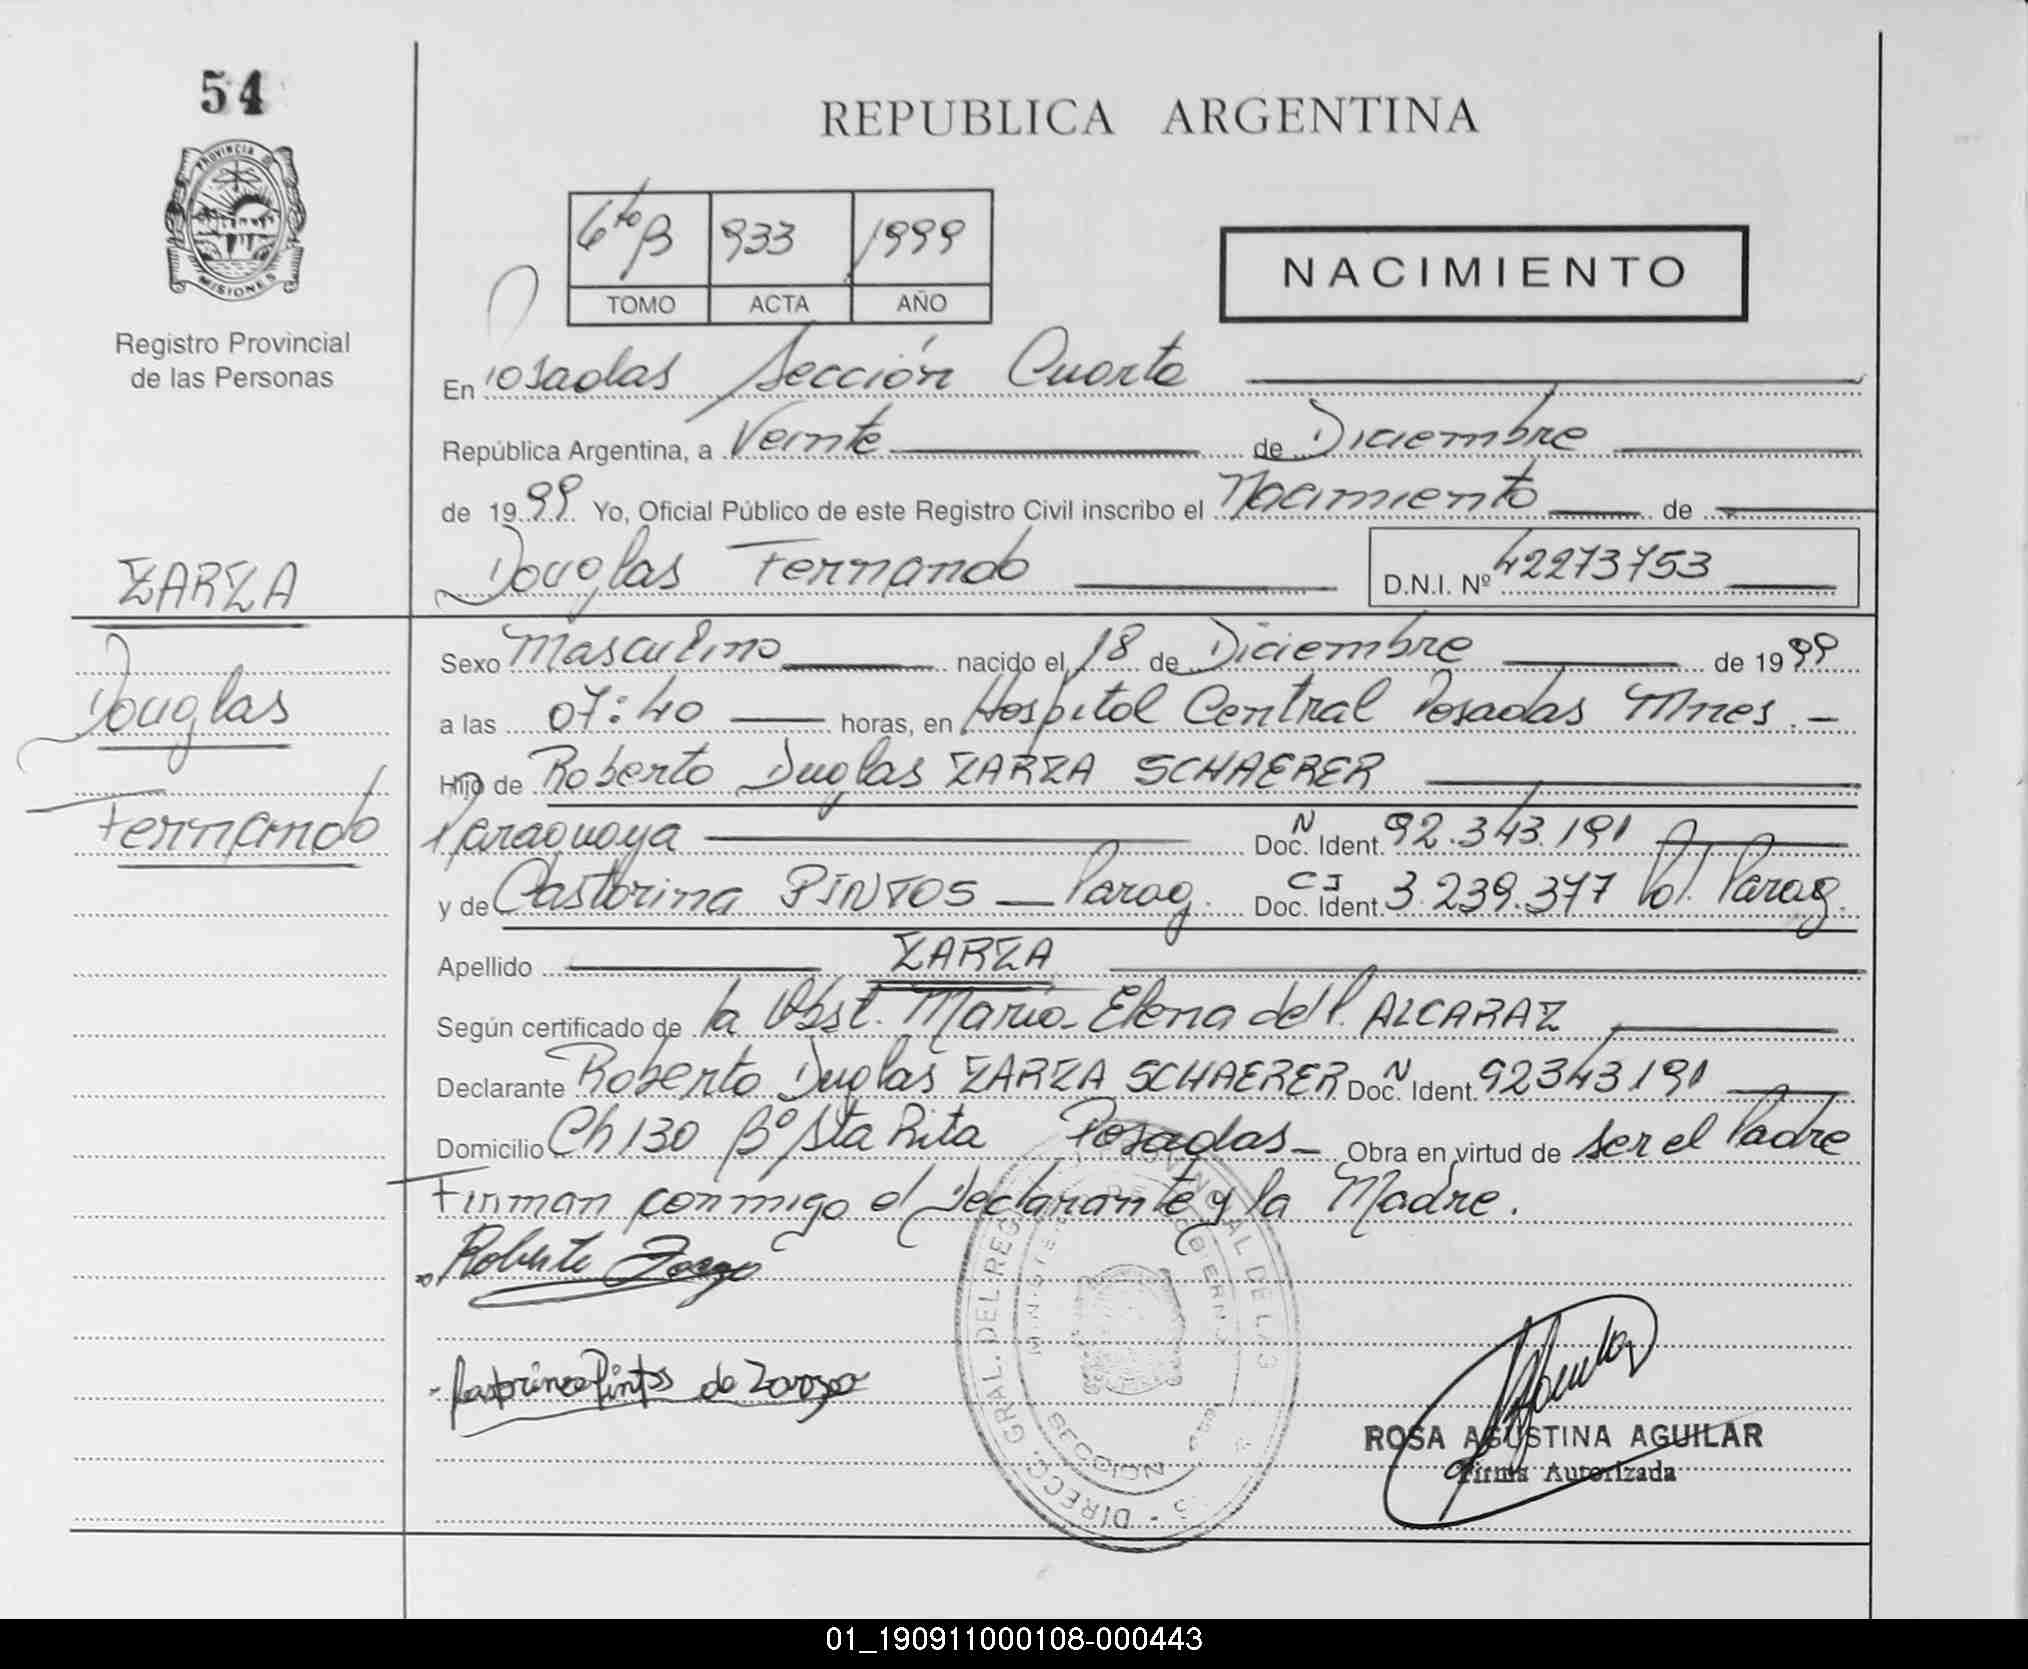 54
REPUBLICA ARGENTINA
PROVINCIA DE
MISIONES
Registro Provincial
de las Personas
6to B 933 1999
TOMO ACTA AÑO
NACIMIENTO
En Posadas Sección Cuarta
República Argentina, a Veinte de Diciembre
de 1999 Yo, Oficial Público de este Registro Civil inscribo el Nacimiento de
Douglas Fernando D.N.I. Nº 42273753
ZARZA
Douglas
Fernando
Sexo Masculino nacido el 18 de Diciembre de 1999
a las 07:40 horas, en Hospital Central Posadas Mnes.-
Hijo de Roberto Duglas ZARZA SCHAERER
Paraguaya Doc. N Ident. 92.343.191
y de Castorina PINTOS — Parag. Doc. CI Ident. 3.239.377 Pol. Parag.
Apellido ZARZA
Según certificado de la Obst. María Elena del P. ALCARAZ
Declarante Roberto Duglas ZARZA SCHAERER Doc. N Ident. 92343191
Domicilio Ch 130 Bº Sta Rita Posadas- Obra en virtud de ser el Padre
Firman conmigo el Declarante y la Madre.
Roberto Zarza
Castorina Pintos de Zarza
DIRECC. GRAL. DEL REG. PROVINCIAL DE LAS
MINISTERIO DE GOBIERNO
SECCION
ROSA AGUSTINA AGUILAR
Firma Autorizada
01_190911000108-000443